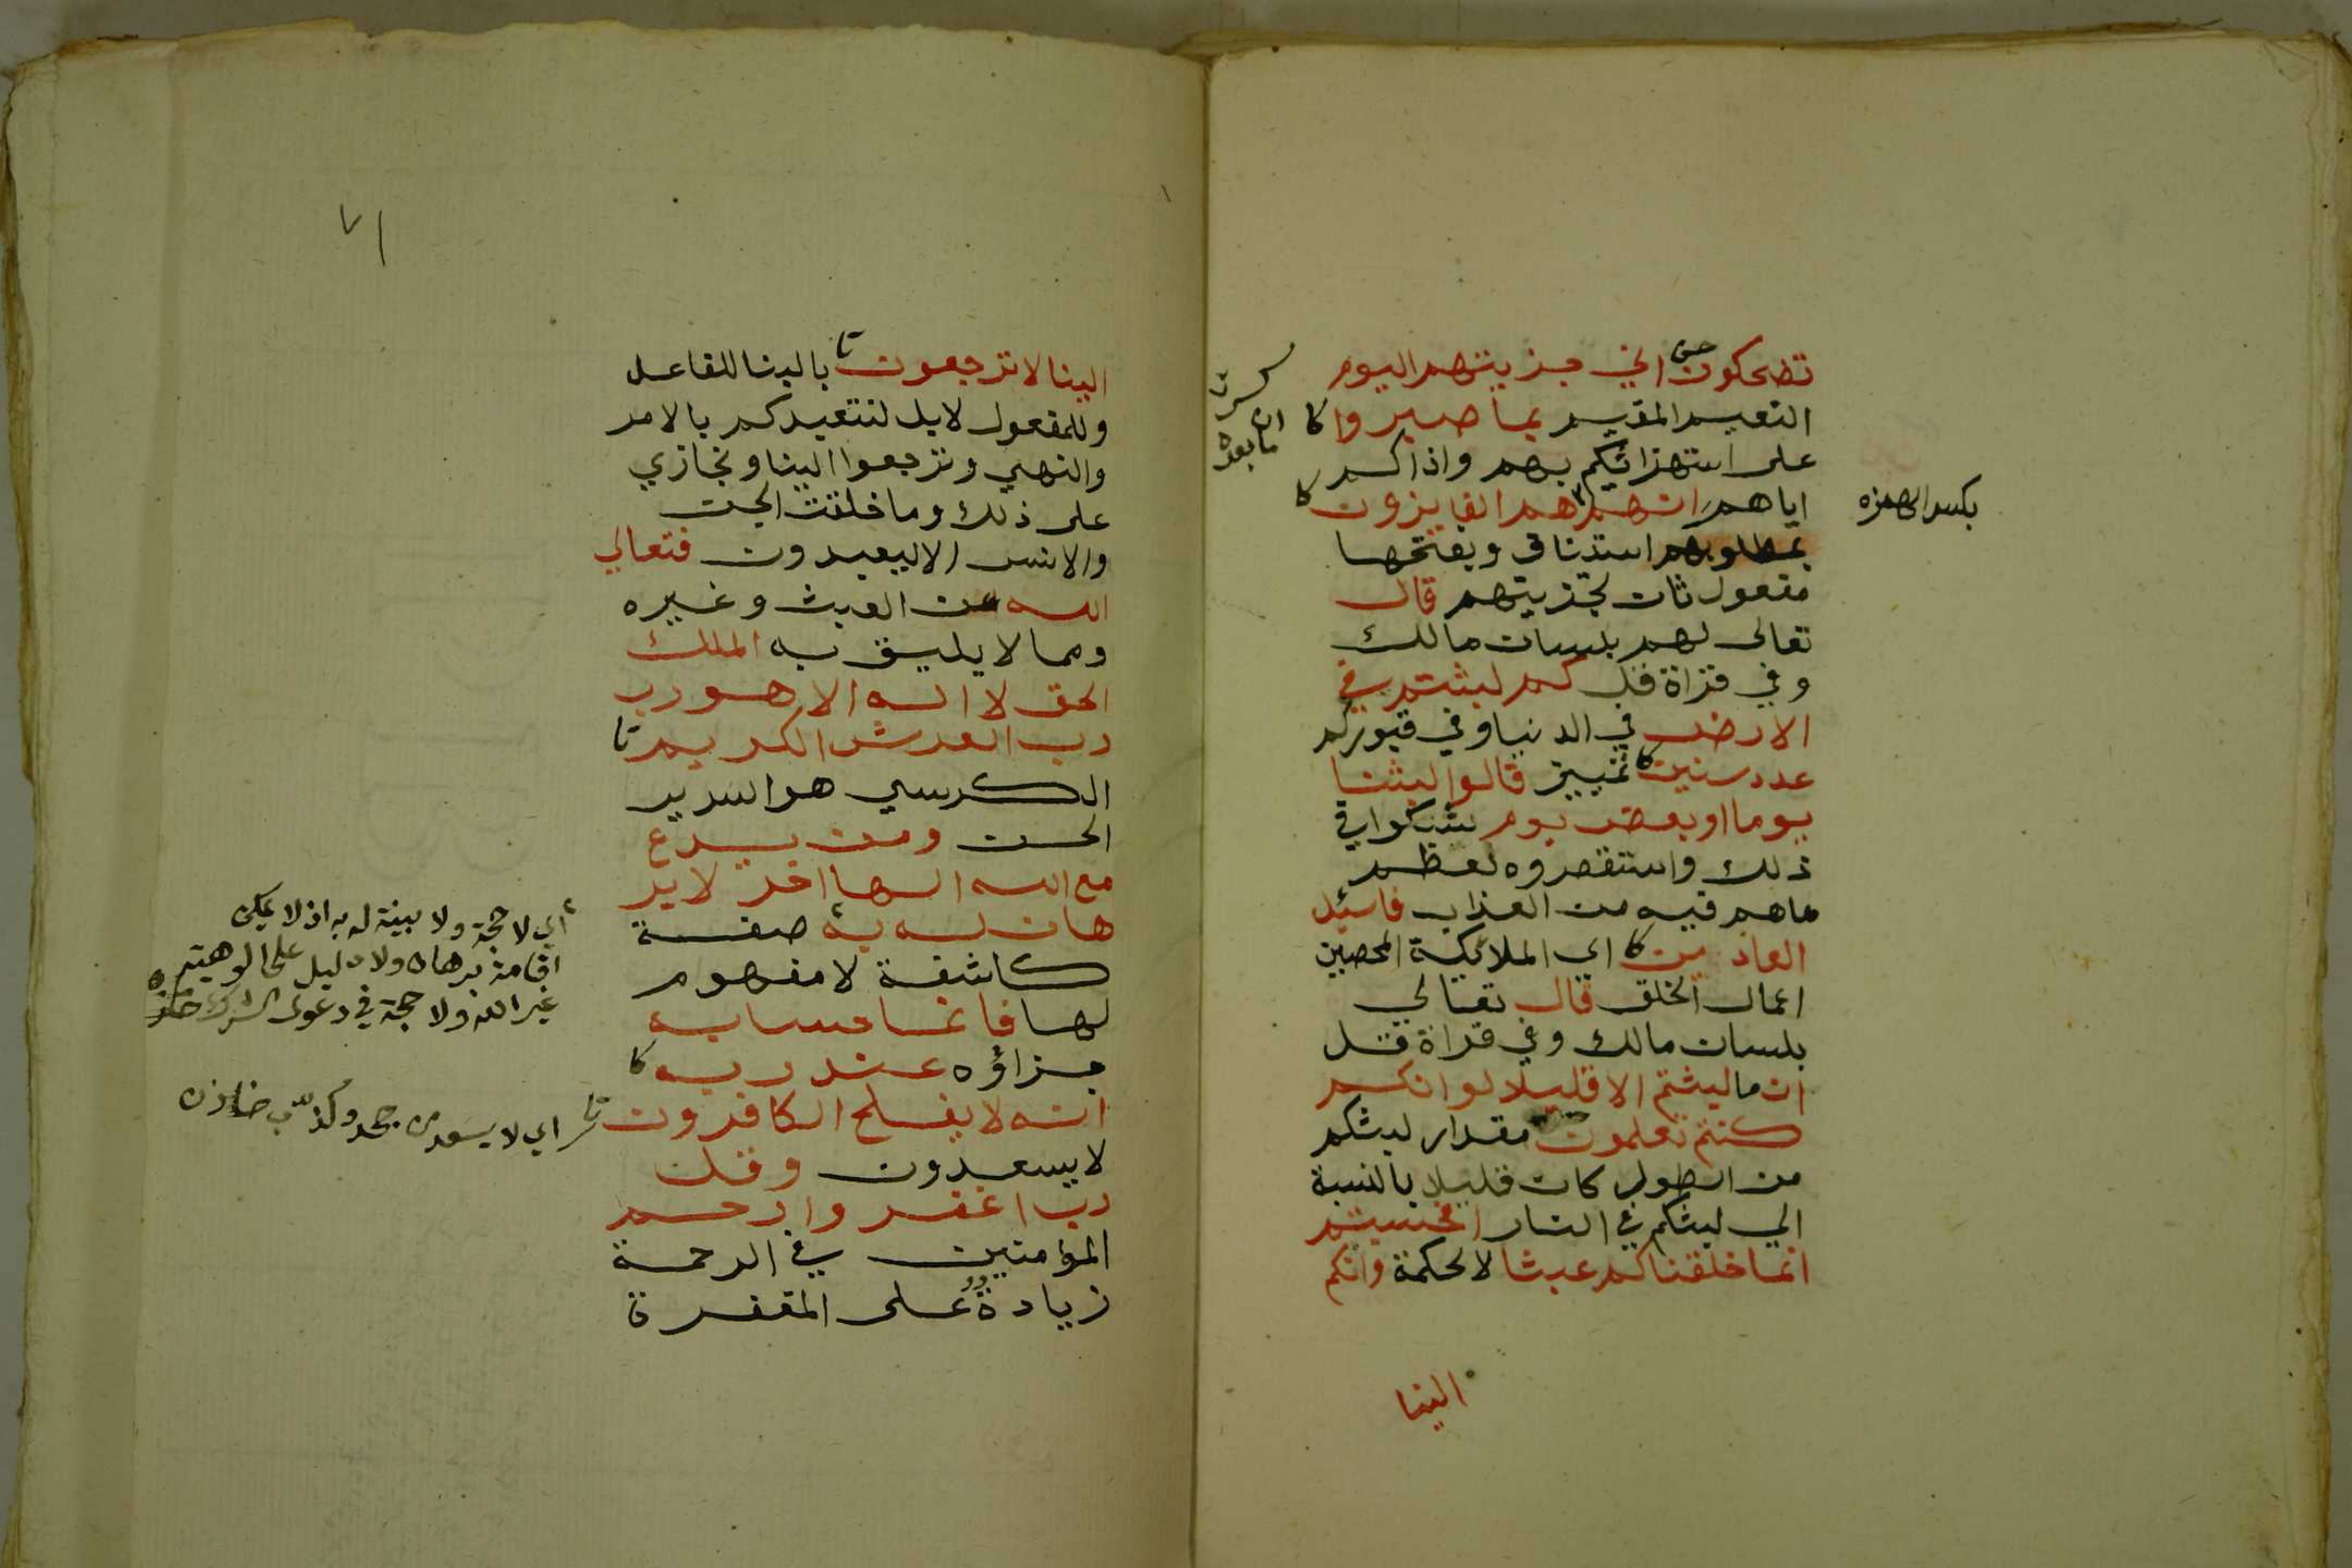 تضحكون اني جزيتهم اليوم
النعيم المقيم بما صبروا
على استهزائكم بهم واذاكم
اياهم انهم هم الفايزون
بمطلوبهم استئناف وبفتحها
مفعول ثان لجزيتهم قال
تعالى لهم بلسان مالك
وفي قراة قل كم لبثتم في
الارض في الدنيا وفي قبوركم
عدد سنين تمييز قالوا لبثنا
يوما او بعض يوم شكوا في
ذلك واستقصروه لعظم
ما هم فيه من العذاب فاسئل
العادين اي الملائكة المحصين
اعمال الخلق قال تعالي
بلسان مالك وفي قراة قل
ان ما لبثتم الا قليلا لو انكم
كنتم تعلمون مقدار لبثكم
من الطول كان قليلا بالنسبة
الي لبثكم في النار افحسبتم
انما خلقناكم عبثا لا لحكمة وانكم
الينا
بكسر الهمزه
كسرت
ان
ما بعده
٧١
الينا لا ترجعون بالبنا للفاعل
وللمفعول لا بل لنتعبدكم بالامر
والنهي وترجعوا الينا ونجازي
على ذلك وما خلقت الجن
والانس الا ليعبدون فتعالي
الله عن العبث وغيره
ومما لا يليق به الملك
الحق لا اله الا هو رب
رب العرش الكريم
الكرسي هو السرير
الحسن ومن يدع
مع الله الها اخر لا بر
هان له به صفة
كاشفة لا مفهوم
لها فانما حسابه
جزاؤه عند ربه
انه لا يفلح الكافرون
لا يسعدون وقل
رب اغفر وارحم
المؤمنين في الرحمة
زيادة على المغفرة
اي لا حجة ولا بينة له به اذ لا يمكن
اقامة برهان ولا دليل على الوهية
غير الله ولا حجة في دعوى الشرك
اي لا يسعد من جحد وكذب خازن